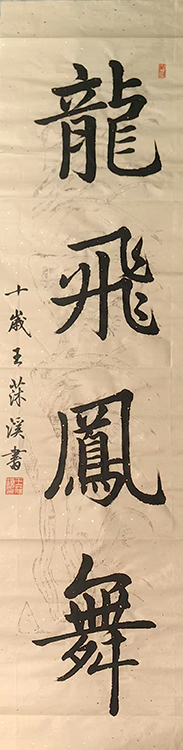 龍飛鳳舞
十歲王莯溪書